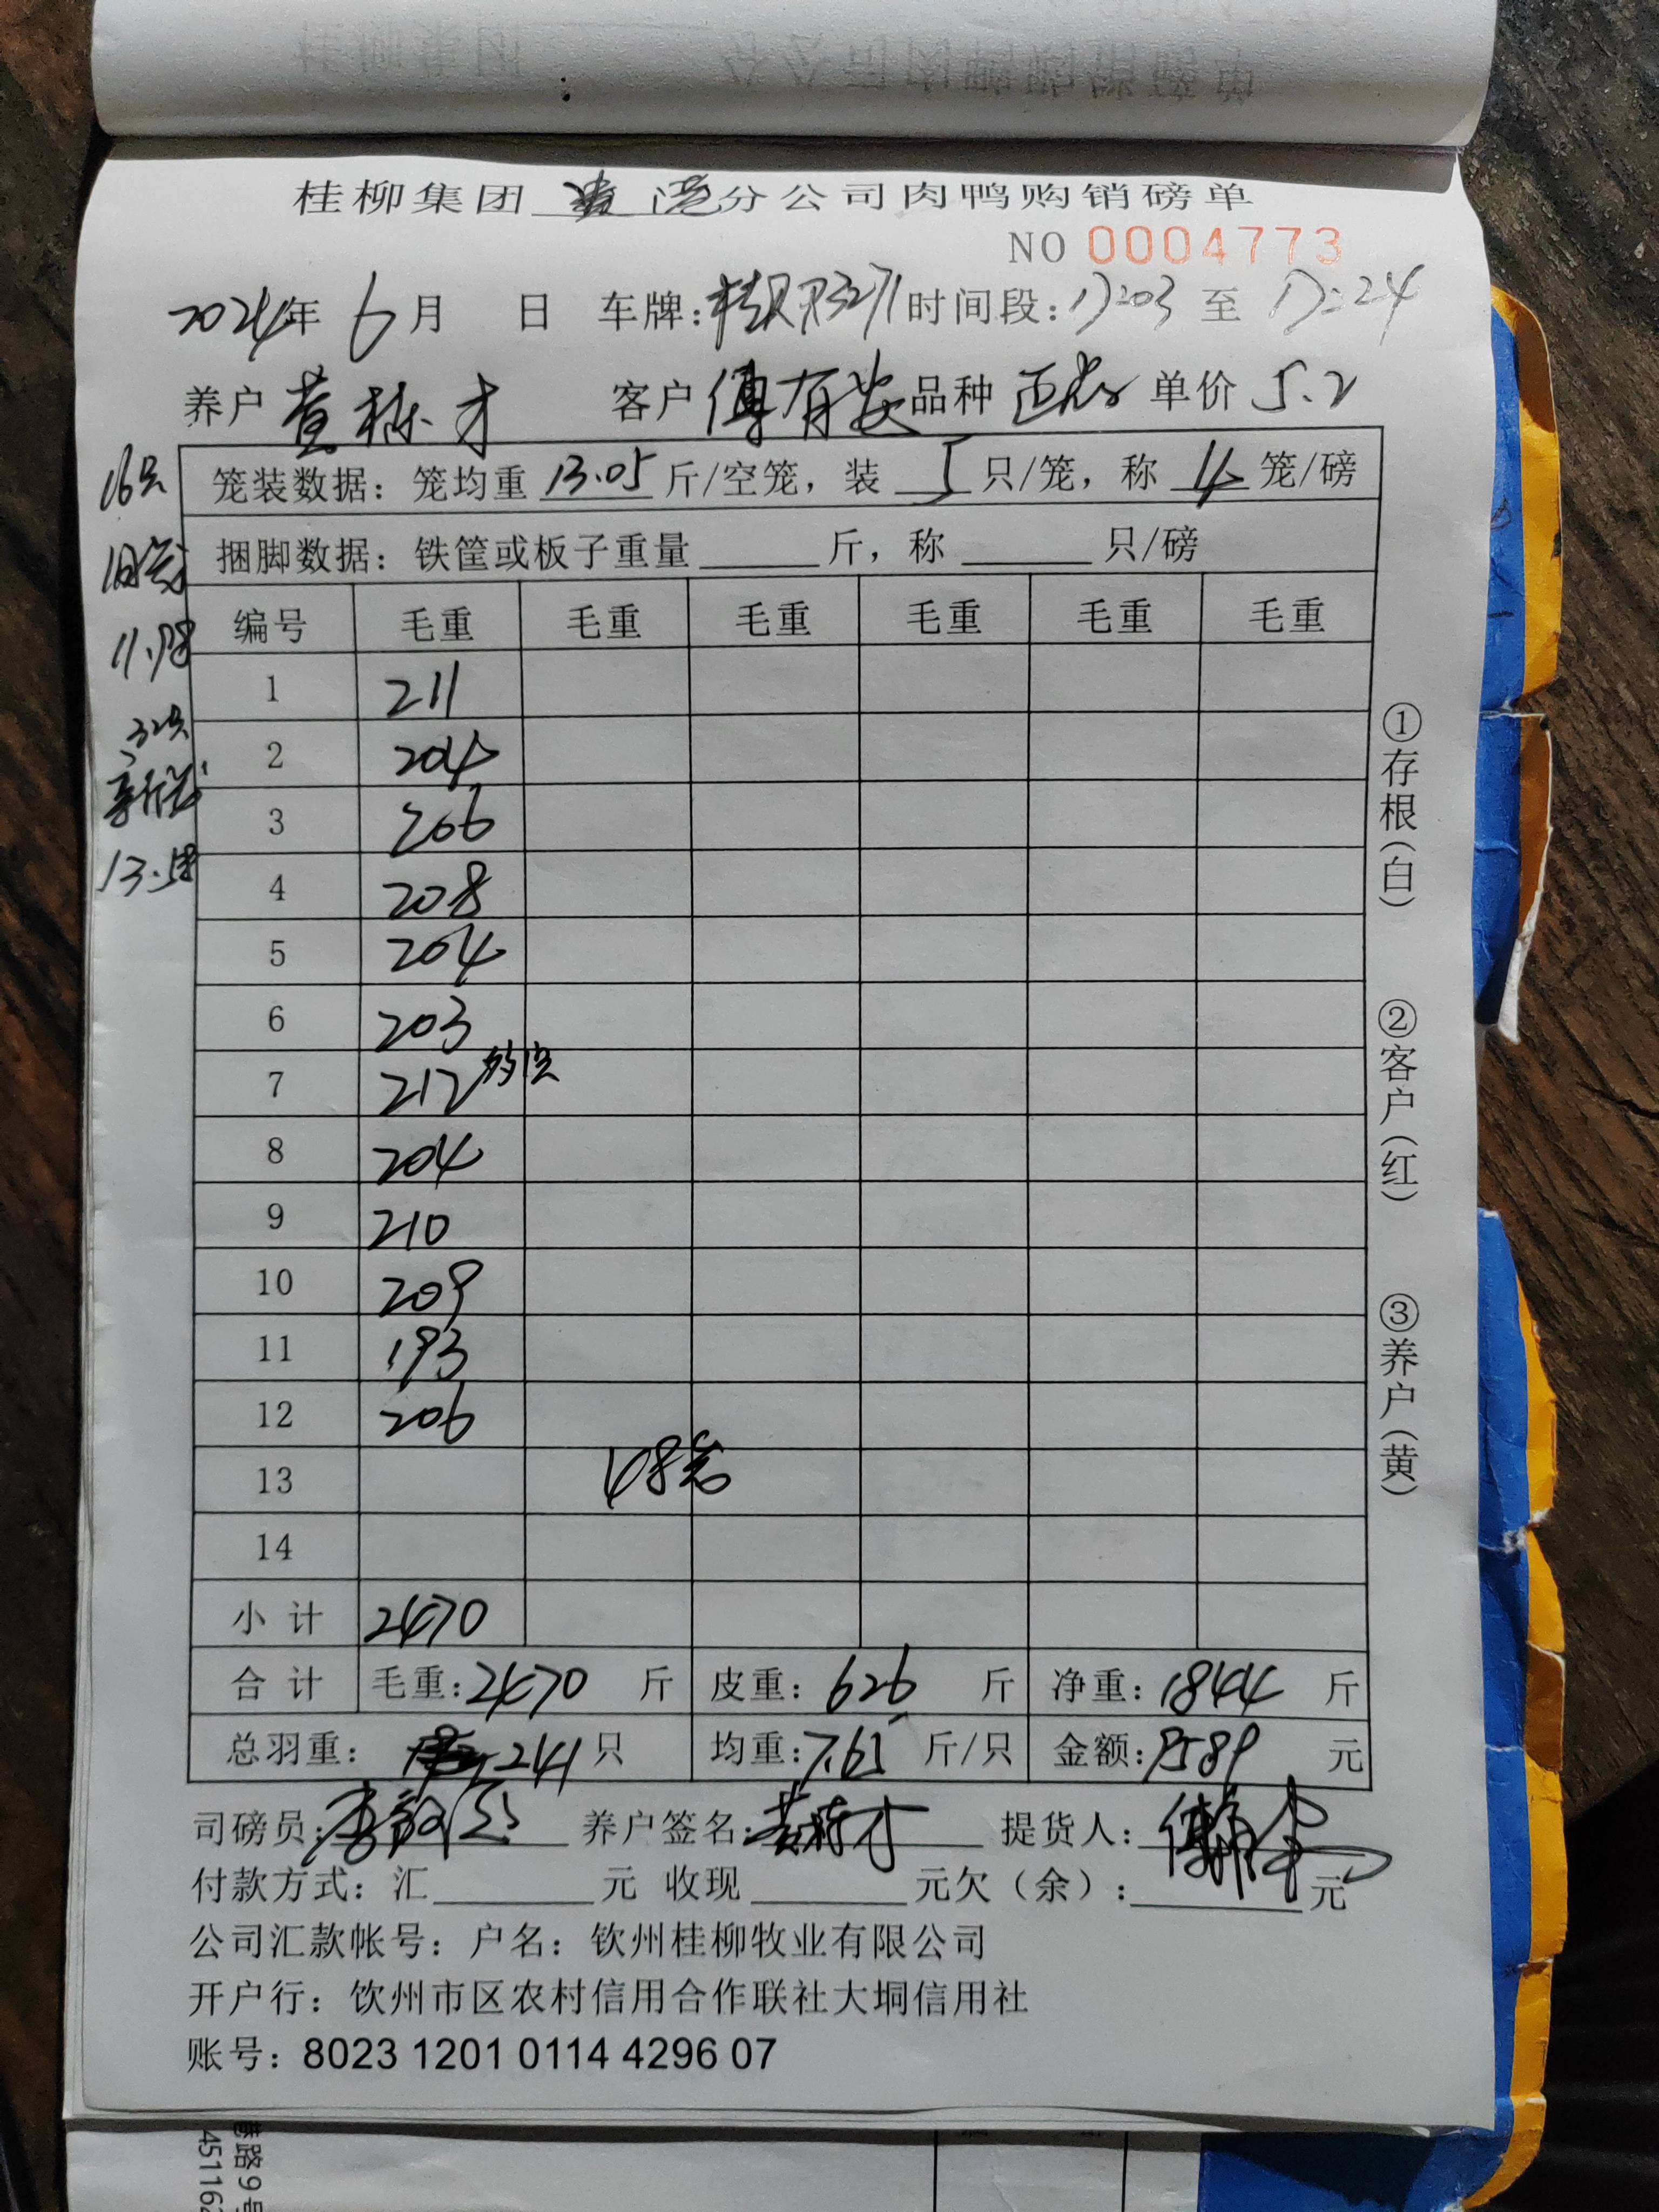 桂柳集团 贵港 分公司肉鸭购销磅单
NO 0004773
2024年 6月 日 车牌: 时间段: 17:03 至 17:24
养户 黄栋才 客户 傅有安 品种 单价 5.2
笼装数据: 笼均重 13.05 斤/空笼, 装 5 只/笼, 称 4 笼/磅
捆脚数据: 铁筐或板子重量 斤, 称 只/磅
16只
旧笼
11.98
32只
新笼
13.58
编号 毛重 毛重 毛重 毛重 毛重 毛重
1 211
2 204
3 206
4 208
5 204
6 203
7 212 多1只
8 204
9 210
10 209
11 193
12 206
13 48笼
14
小计 2470
合计 毛重: 2470 斤 皮重: 626 斤 净重: 1844 斤
总羽重: 241 只 均重: 7.65 斤/只 金额: 9589 元
司磅员: 养户签名: 黄栋才 提货人:
付款方式: 汇 元 收现 元欠（余）: 元
公司汇款帐号: 户名: 钦州桂柳牧业有限公司
开户行: 钦州市区农村信用合作联社大垌信用社
账号: 8023 1201 0114 4296 07
①存根(白) ②客户(红) ③养户(黄)
路9号
451162